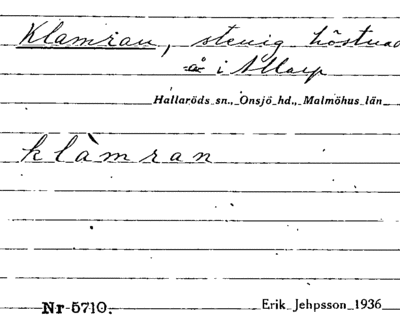 Klamran, stenig höstnad
å i Allarp
Hallaröds sn., Onsjö hd., Malmöhus län
klàmran
Nr 5710. Erik Jehpsson 1936